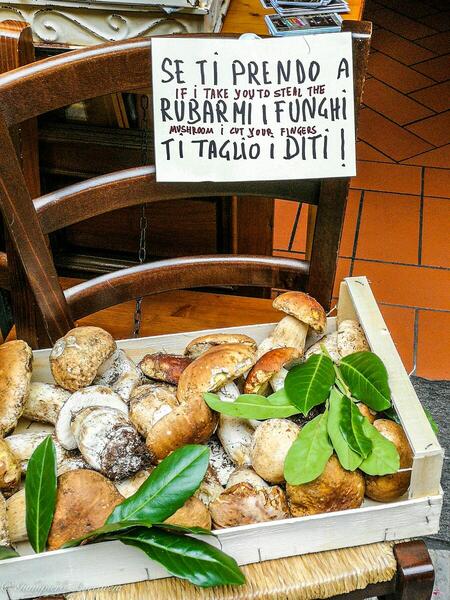 SE TI PRENDO A
IF i TAKE YOU TO STEAL THE
RUBARMI I FUNGHI
MUSHROOM i CUT YOUR FINGERS
TI TAGLIO I DITI!